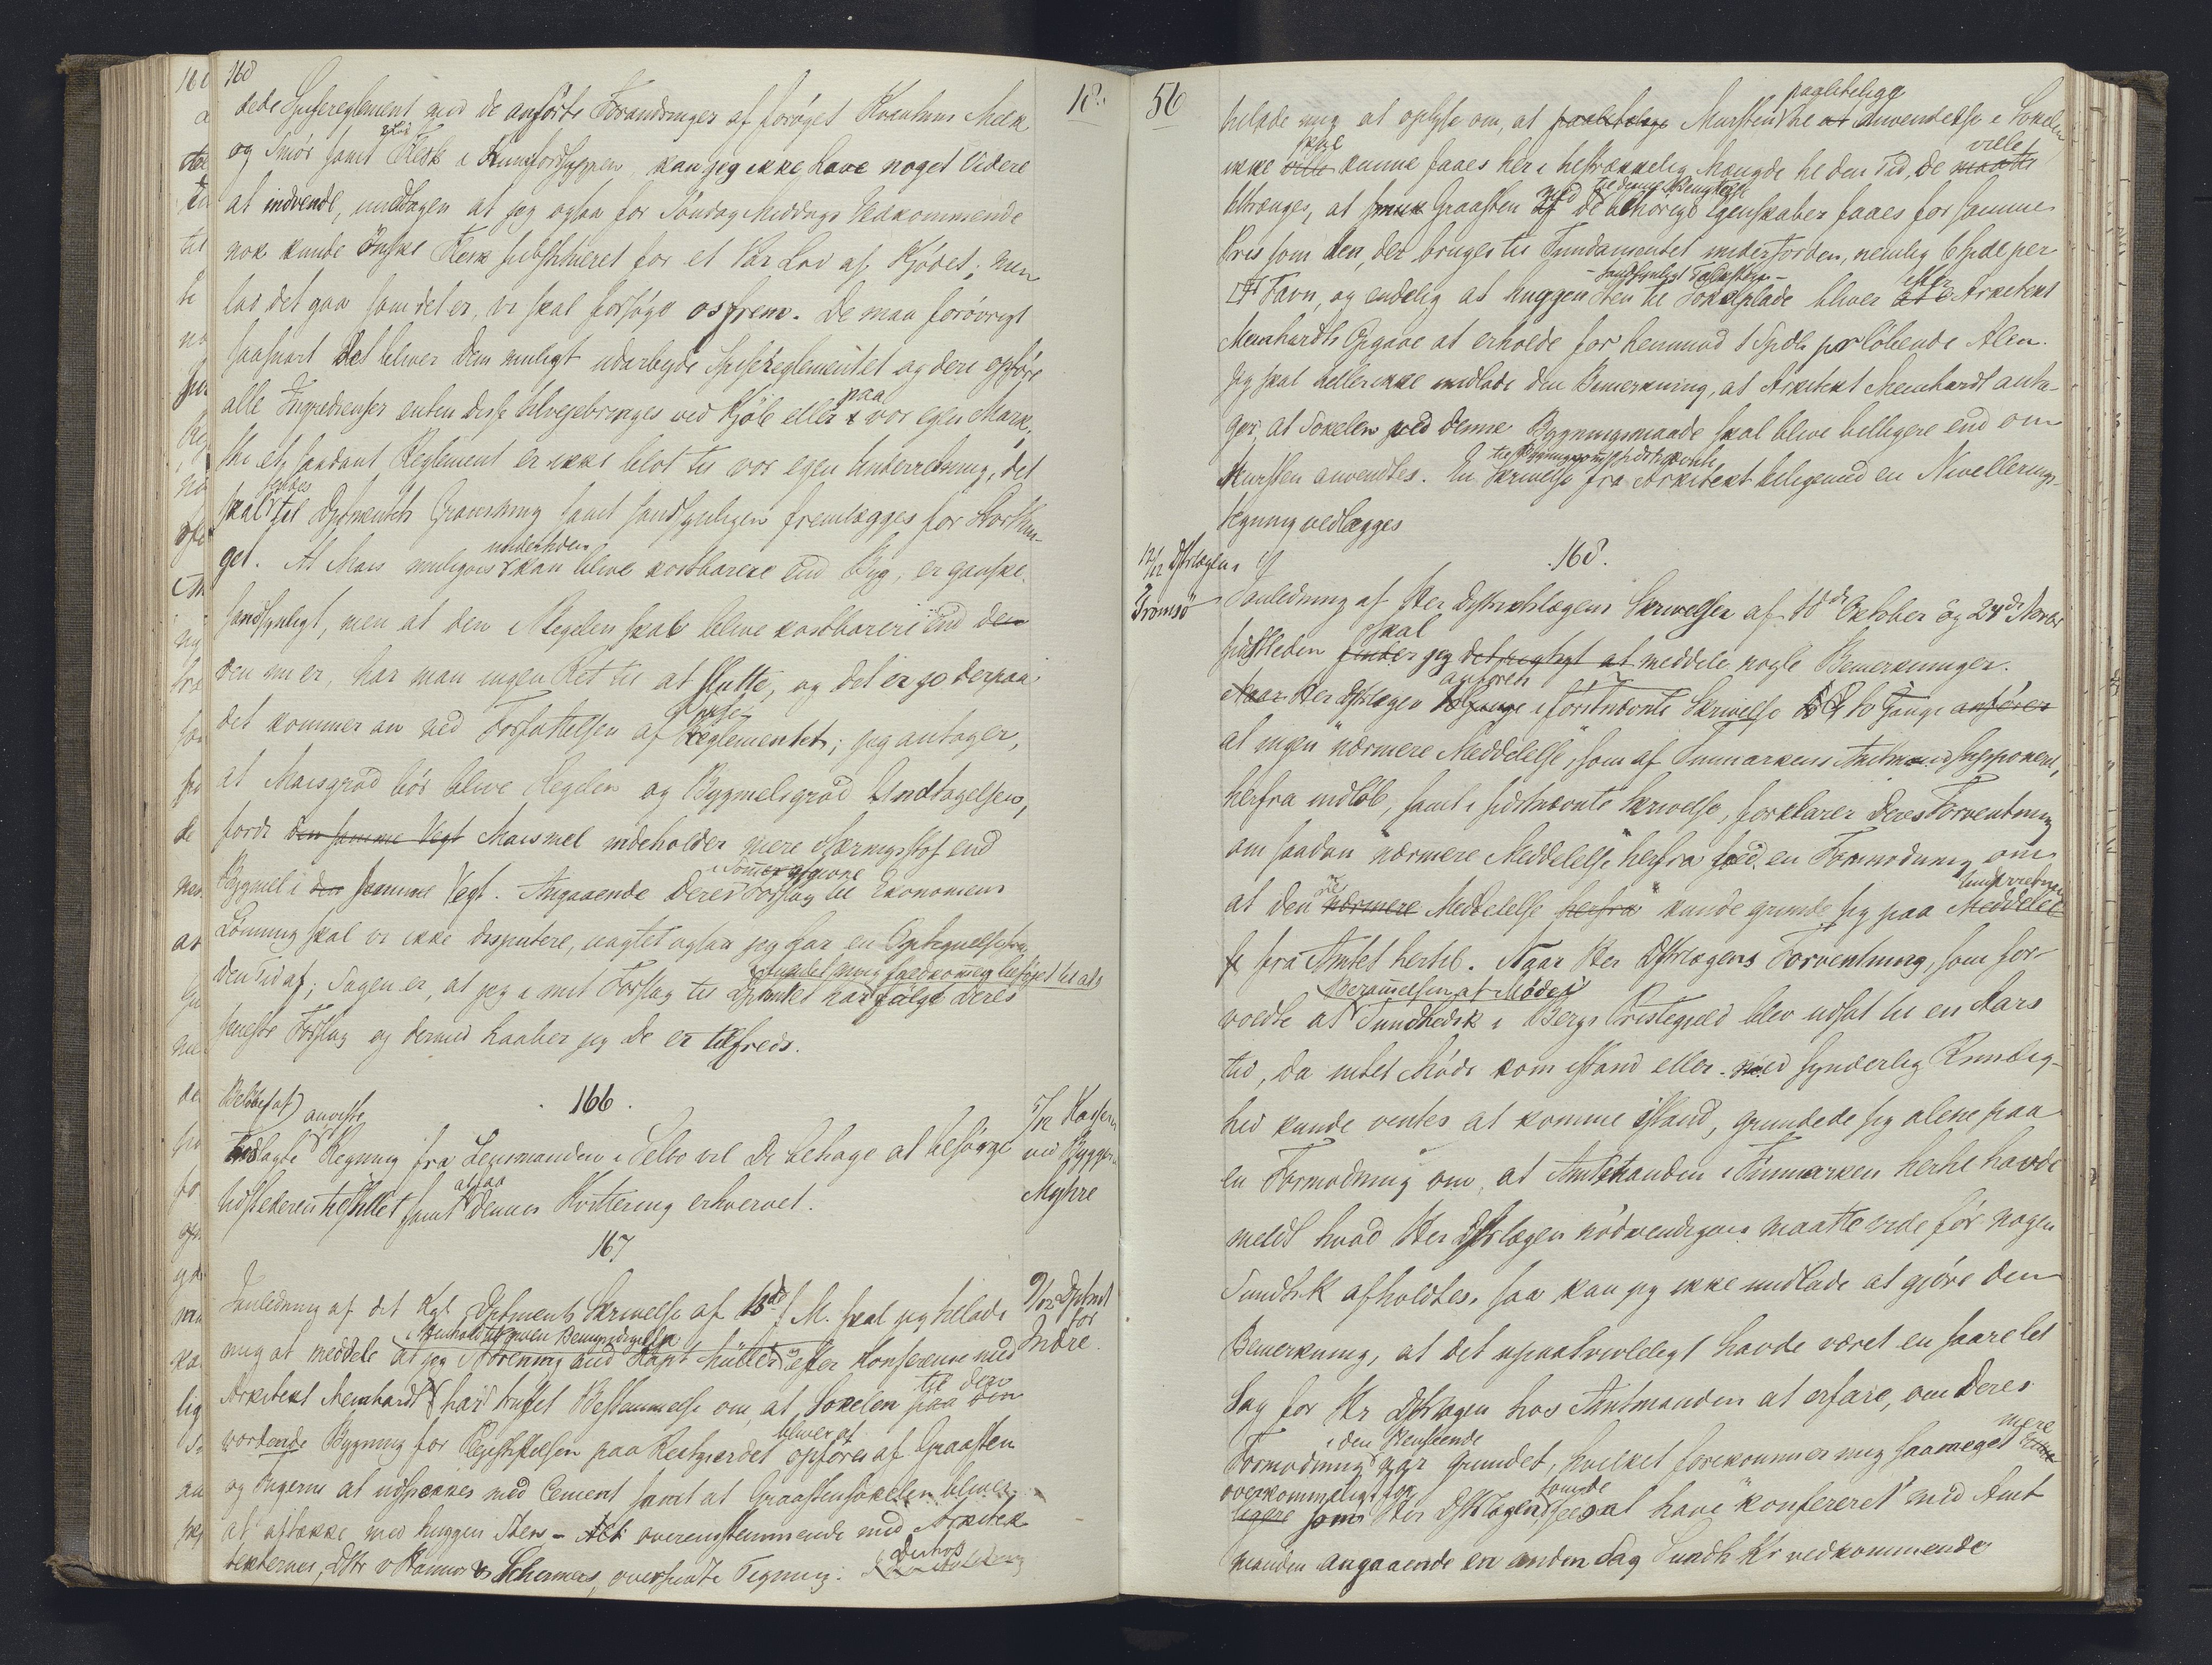 160
18
dede Spisereglement med de anförte Forandringer af forøget Kvantum Melk
og Smör samt Flesk i Kumfordsuppen kan jeg ikke have noget videre
at indvende, undtagen at jeg ogsaa for Söndag Middags Vedkommende
nok kunde önske Flesk substitueret for et Par Lod af Kjödet; men
lad det gaa som det er, vi skal forsöge os frem. De maa forövrigt
saasnart det bliver Dem muligt udarbeyde Spisereglementet og deri opföre
alle Ingredienser enten disse tilvejebringes ved Kjöb eller paa vor egen Mark,
thi et saadant Reglement er ikke blot til vor egen Underretning, det
skal sendes til Dptmentets Granskning samt sandsynligen fremlægges for Storthin-
get. At Mais muligvis undertiden kan blive kostbarere end Byg, er ganske
sandsynligt, men at den i Regelen skal blive kostbarere end den
den nu er, har man ingen Ret til at slutte, og det er jo derpaa
det kommer an ved Forfattelsen af Spise-Reglementet; jeg antager,
at Maisgröd bör blive Regelen og Bygmelsgröd Undtagelsen,
fordi den samme Vegt Maismel indeholder mere Næringsstof end
Bygmel i den samme Vegt. Angaaende Deres Forslag til Ekonomens
Lönning skal vi ikke disputere, uagtet ogsaa jeg har en Optegnelse fra
den Tid af; Sagen er, at jeg i mit Forslag til Dptmtet har fulgt Deres
seneste Forslag og dermed haaber jeg De er tilfreds.
166.
5/12 Kassen
ved Bygge
Myhre
Belöbet af
hoslagte anviste Regning fra Lensmanden i Selbo vil De behage at besörge
Udstederen tilstillet samt dennes Kvittering erhvervet.
167
9/12 Dptmt
for
Indre.
I Anledning af det Kgl Dptments Skrivelse af 13de f. M. skal jeg herved
mig at meddele at jeg i Forening med Kapt. Müller og efter Konference med
Arkitekt Meinhardt har truffet Bestemmelse om, at Sokelen til den
vordende Bygning for Plejestiftelsen paa Reitgjerdet bliver at opföre af Graasten
og Fugerne at udspekkes med Cement samt at Graastensokelen bliver
at aftække med huggen Sten - Alt overensstemmende med Arkitek
tekterne, DHrr v Hanno & Schirmers, oversendte Tegning.
56
helade mig at oplyse om, at paalitelige Mursten til Anvendelse i Sokelen
ikke skal kunne faaes her i tilstrækkelig Mængde til den Tid, de ville
tiltrænges, at Graasten med de til denne Benyttelse behörige Egenskaber faaes for samme
Pris som den, der bruges til Fundamentet under Jorden, nemlig 6 Spdl per
Favn, og endelig at huggen Sten til Sokelplade bliver efter Arkitekt
Meinhardts Opgave at erholde for henimod 1 Spdl. pr löbende Alen.
Jeg skal heller ikke undlade den Bemerkning, at Arkitekt Meinhardt anta-
ger, at Sokelen ved denne Bygningsmaade skal blive billigere end om
Mursten anvendtes. En Skrivelse fra Arkitekt tilligemed en Nivellerings-
tegning vedlægges
12/12 Dstrlægen i
Tromsö
168.
I Anledning af Her Distriktslægens Skrivelser af 10de Oktober og 24de Novbr
sidstleden skal jeg meddele nogle Bemerkninger.
Naar Her Dstrlægen anförer i förstnævnte Skrivelse to Gange anförer
at ingen "nærmere Meddelelse", som af Finmarkens Amtmand supponeret,
herfra indlöb, samt i sidstnævnte Skrivelse, forklarer Deres Forventning
om saadan "nærmere Meddelelse herfra" ved en Formodning om
at den nærmere Meddelelse herfra" kunde grunde sig paa Underretning
fra Amtet hertil. Naar Her Dstrlægens Forventning, som for-
voldte at Berammelsen af Möde i Sundhedsk i Bergs Prestegjeld blev udsat til en Aars
tid, da intet Möde kom istand eller med synderlig Rimelig-
hed kunde ventes at komme istand, grundede sig alene paa
en Formodning om, at Amtmanden i Finmarken hertil havde
meldt hvad Her Dstrlægen nödvendigvis maatte vide för nogen
Sundh.K afholdtes, saa kan jeg ikke undlade at gjöre den
Bemerkning, at det upaatvivleligt havde været en saare let
Sag for Hr Dstrlægen hos Amtmanden at erfare, om Deres
Formodning i den Henseende var grundet, hvilket forekommer mig saameget mere
overkommeligt som Her Dstrlægen sees at have "konfereret" med Amt
manden angaaende en anden Sag Sundh. Kr vedkommende